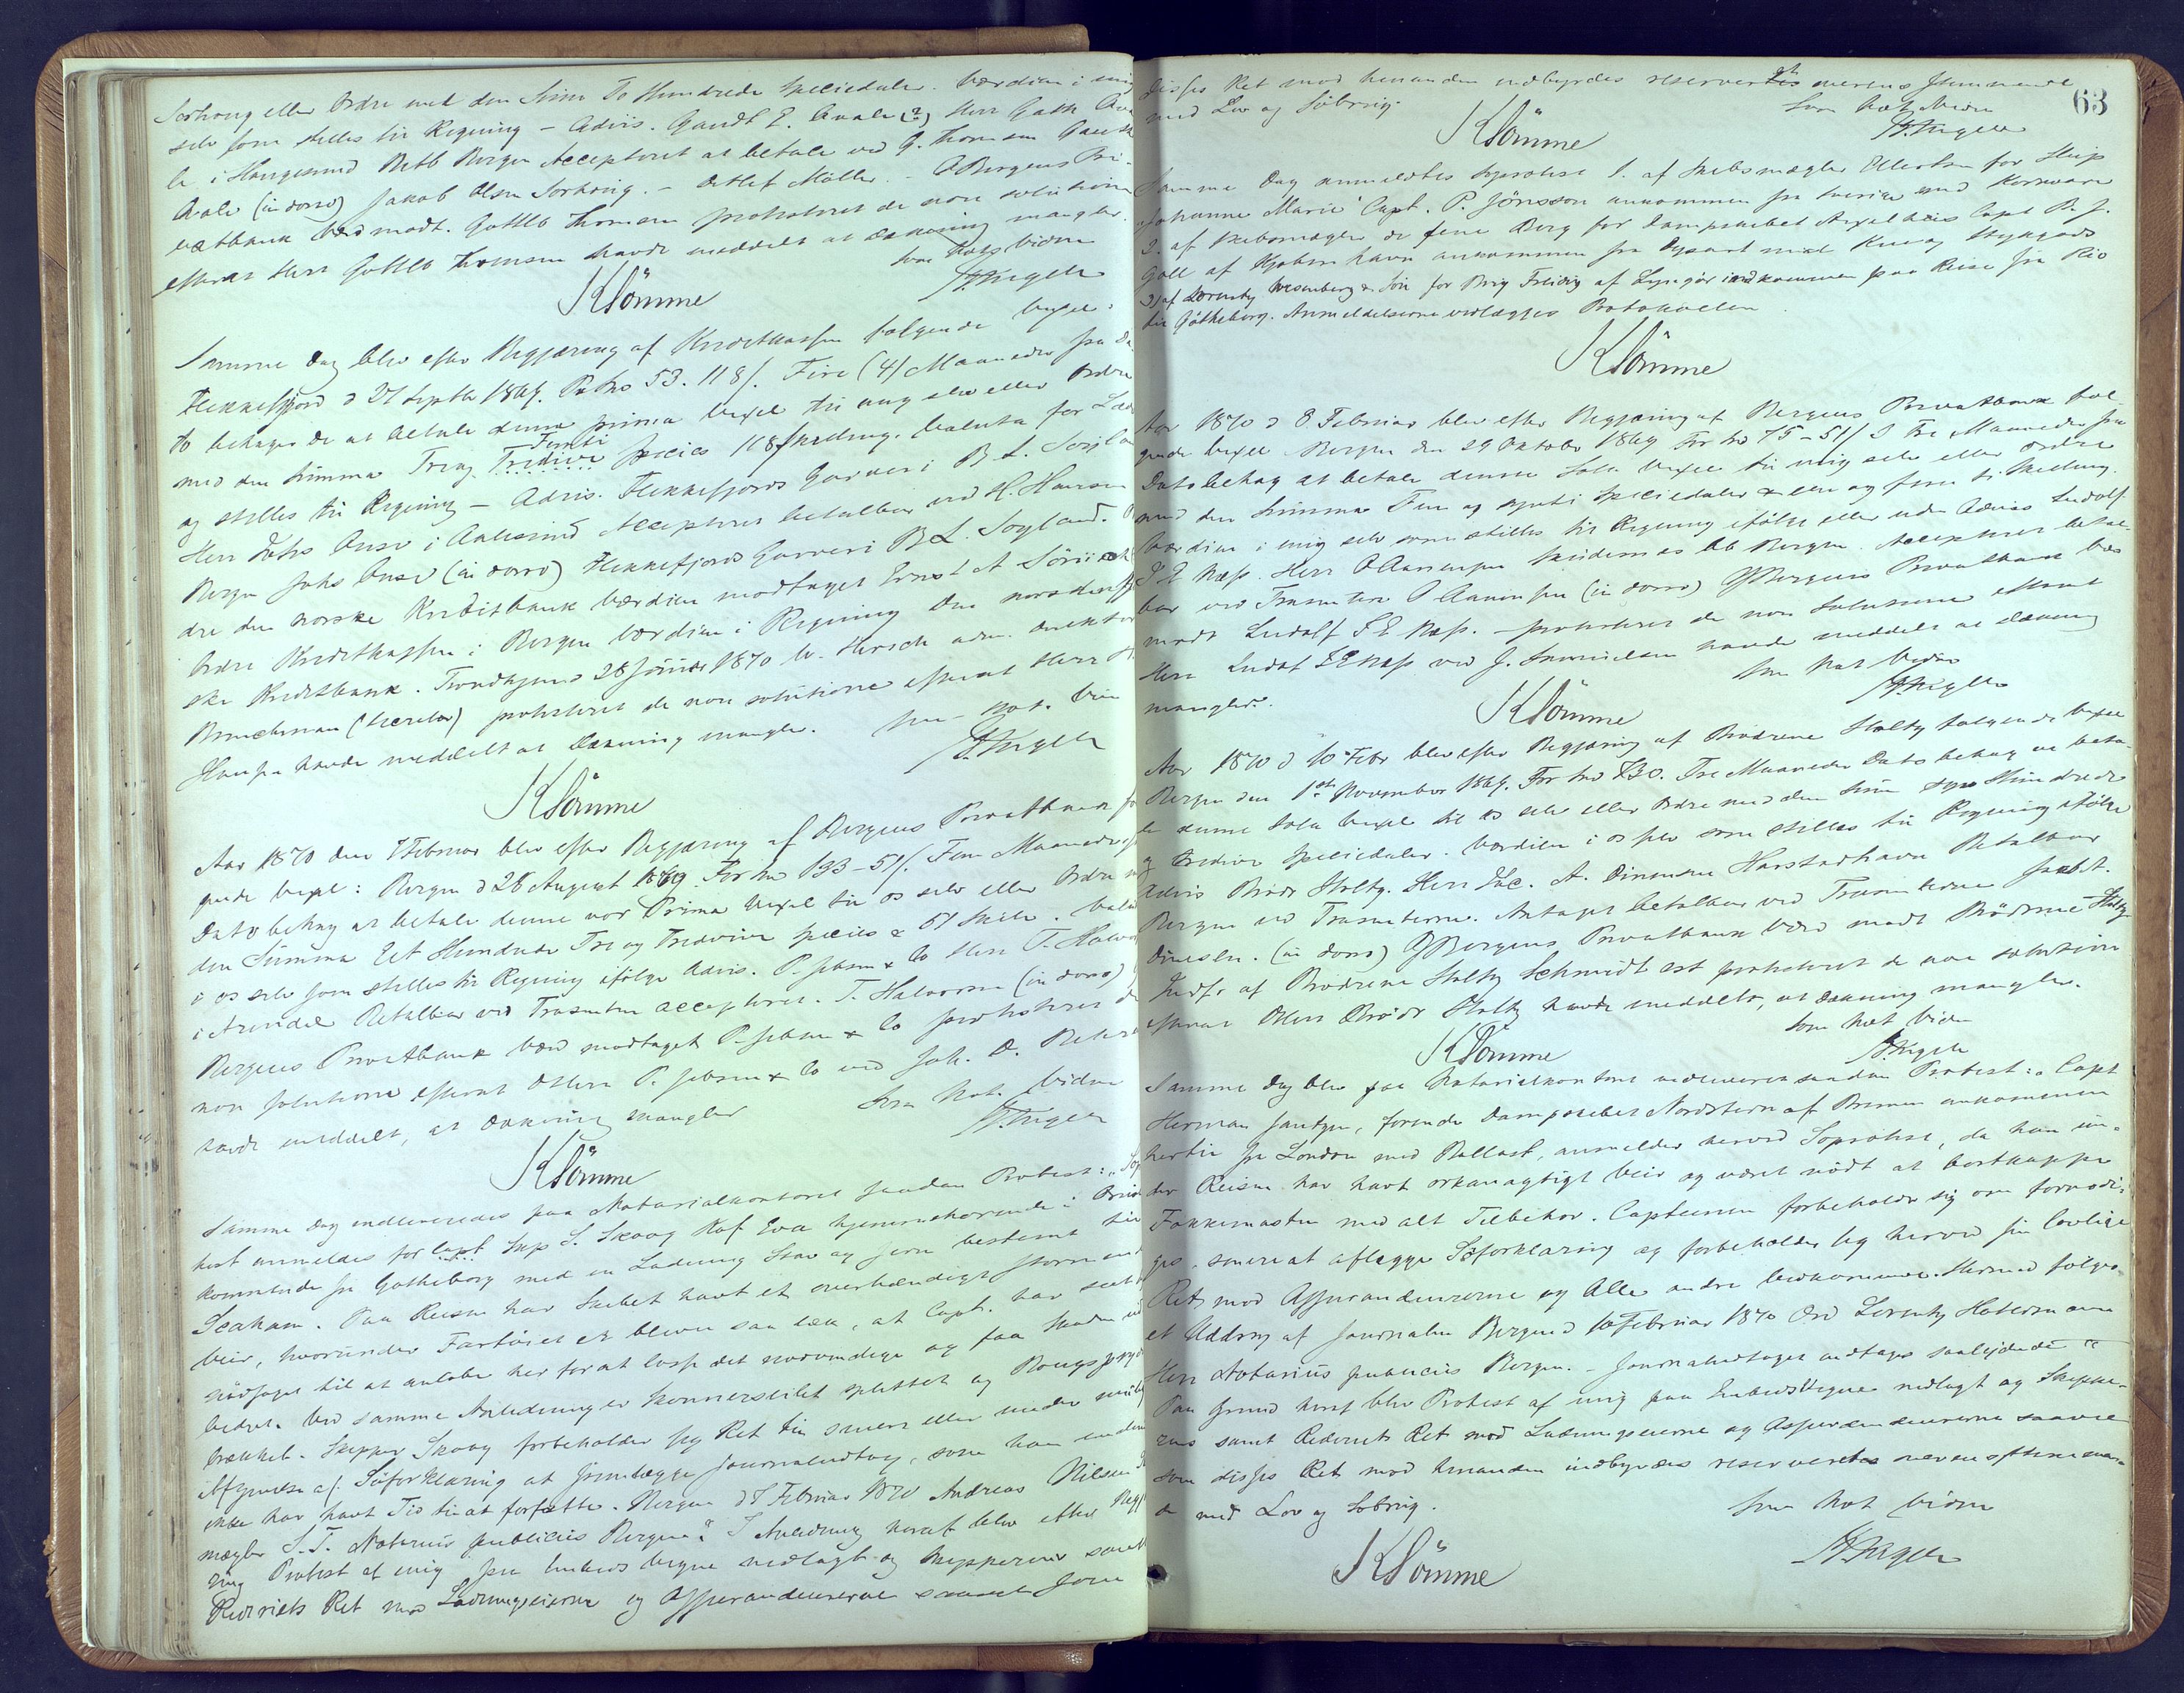 Sørhoug eller Ordre med den Sum To Hundrede Speciedaler. Værdien i mig
selv som stilles til Regning – Adviis. Gaudt E. Avale (?) Herr Gath Ava
le i Haugesund Betb Bergen Accepteret at betale ved G. Thomsen Gauth
Avale (in dorso) Jakob Olsen Sørhoug. – Detlef Möller. – Bergens Pri-
vatbank Værd modt. Gottlb Thomsen protesteret de non solutione
efterat Herr Gottlb Thomsen havde meddelt at Dækning mangler.
Som Not. vidner
Klömme
Samme Dag blev efter Begjæring af Kreditkassen følgende Vexel:
Flekkefjord d 27 Septbr 1869. Pr No 53. 118 ß. Fire (4) Maaneder fra Da-
to behager De at betale denne prima Vexel til mig selv eller Ordre
med den Summa Tre og Femti Tredive Species 118 Skilling. Valuta for Læder
og stilles til Regning – Adviis. Flekkefjords Garveri B L. Søyland
Herr Johs Buse i Aalesund Accepteret betalbar ved H. Hansen
Bergen Johs Buse (in dorso) Flekkefjords Garveri B L. Søyland.
dre den norske Kreditbank Værdien modtaget Ernst A Sörik
Ordre Kreditkassen i Bergen Værdien i Regning Den nordenfjel
ske Kreditbank. Trondhjem d 28 Januar 1870 W. Hirsch adm. direktør
Bruchman (Secretær) protesteret de non solutione efterat Herr H.
Hansen havde meddelt at Dækning mangler. Som Not. Vid
Klömme
Aar 1870 den 7 Februar blev efter Begjæring af Bergens Privatbank føl
gende Vexel: Bergen d 28 August 1869. For No 133–51 ß. Fem Maaneder
Dato behag at betale denne vor Prima Vexel til os selv eller Ordre m
den Summa Et Hundrede Tre og Tredivive Species & 51 Skill. Valu
i os selv som stilles til Regning ifølge Adviis. P. Jebsen & Co Herr T. Halvor
i Arendal Betalbar ved Trasenten accepteret. T. Halvorsen (in dorso)
Bergens Privatbank Værd modtaget P. Jebsen & Co protesteret de
non solutione efterat DHerrer P. Jebsen & Co ved Joh. D. Behre
havde meddelt, at Dækning mangler Som Not. Vidner
Klömme
Samme Dag indleveredes paa Notarialkontoret saadan Protest: "Sø
test anmeldes for Capt Skp S. Skoog Kof Eva hjemmehørende i
kommende fra Gøtheborg med en Ladning Stav og Jern bestemt til
Seaham. Paa Reisen har Skibet havt et overhændigt Storm
veir, hvorunder Fartøiet er bleven saa læk, at Capt. har seet
nødsaget til at anløbe her for at losse det nødvendige og faa Skaden
bedret. Ved samme Anledning er Skonnerseilet splittet og Bougspryd
brækket. Skipper Skoog forbeholder sig Ret til senere eller under
Afgivelse af Søforklaring at fremlægge Journaludtog, som han endnu
ikke har havt Tid til at forfatte. Bergen d 7 Februar 1870 Andreas Nilsen
mægler S. T. Notarius publicus Bergen". I Anledning heraf blev efter Begjæ
ring Protest af mig paa Embeds Vegne nedlagt og Skipperens samt
Rederiets Ret mod Ladningseierne og Assurandeurerne saavel som
63
disses Ret mod hinanden indbyrdes reserveret overensstemmende
med Lov og Søbrug. Som Not. Vidner
Klömme
Samme Dag anmeldtes Søprotest 1. af Skibsmægler Ellertsen for Skip
"Johanne Marie" Capt. P. Jönsson ankommen fra Sverige med Kornvare
2. af Skibsmægler de fine Berg for Dampskibet Axelhuis Capt P. J.
Gøll af Kjøbenhavn ankommen fra Dysart med Kul og Stykgods
3) af Lorentz Wesenberg & Søn for Brig Freidig af Lyngør indkommen paa Reise fra Rio
til Gøtheborg. Anmeldelserne vedlægges Protokollen.
Klömme
Aar 1870 d 8 Februar blev efter Begjæring af Bergens Privatbank føl-
gende Vexel Bergen den 29 Oktober 1869 For No 75–51 ß Tre Maaneder fra
Dato behag at betale denne Sola Vexel til mig selv eller Ordre
med den Summa Fem og sytti Speciedaler & een og femti Skilling.
Værdien i mig selv som stilles til Regning ifølge eller uden Adviis Ludolf
S E Næss. Herr O Aanensen Skudesnæs bb Bergen. Accepteret betal-
bar ved Trasenten O Aanensen (in dorso) Bergens Privatbank Vær
modt Ludolf S E Næss. – protesteret de non Solutione efterat
Herr Ludolf S E Næss ved J. Samuelsen havde meddelt at Dækning
mangler. Som Not Vidner
Klömme
Aar 1870 d 10 Febr blev efter Begjæring af Brødrene Stoltz følgende Vexel
Bergen den 1st November 1869. For No 730. Tre Maaneder Dato behag at beta-
le denne Sola Vexel til os selv eller Ordre med den Sum syv Hundrede
og tredive Speciedaler. Værdien i os selv som stilles til Regning ifølge
Adviis Brødr Stoltz. Herr A. Dinesen Harstadhavn Betalbar
Bergen ved Trasenterne. Antaget betalbar ved Trasenterne A.
Dinesen. (in dorso) Bergens Privatbank Værd modt Brödrene Stoltz
Indf. af Brødrene Stoltz Schmidt est protesteret de non solutione
efterat DHerr Brødr Stoltz havde meddelt, at Dækning mangler.
Som Not Vidn
Klömme
Samme Dag blev paa Notarialkontoret indleveret saadan Protest: "Capt
Herman Jantzen, førende Dampskibet Nordstern af Bremen ankommen
hertil fra London med Ballast, anmelder herved Søprotest, da han un-
der Reisen har havt orkanagtigt Veir og været nødt at bortkappe
Fokkemasten med alt Tilbehør. Capteinen forbeholder sig om fornødi-
ges, senere at aflægge Søforklaring og forbeholder sig herved sin lovlige
Ret mod Assurandeurerne og Alle andre Vedkommende. Hermed følger
et Uddrag af Journalen Bergen d 10 Februar 1870 Lorentz Haterman
Herr Notarius publicus Bergen. – Journaludtoget indtages saalydende
Paa Grund heraf blev Protest af mig paa Embeds Vegne nedlagt og Skippe-
rens samt Rederiets Ret mod Ladningseierne og Assurandeurerne saavel
som disses Ret mod hinanden indbyrdes reserveret overensstemmen-
de med Lov og Søbrug. Som Not Vidner
Klömme